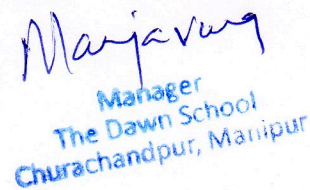 Manager
The Dawn School
Churachandpur, Manipur